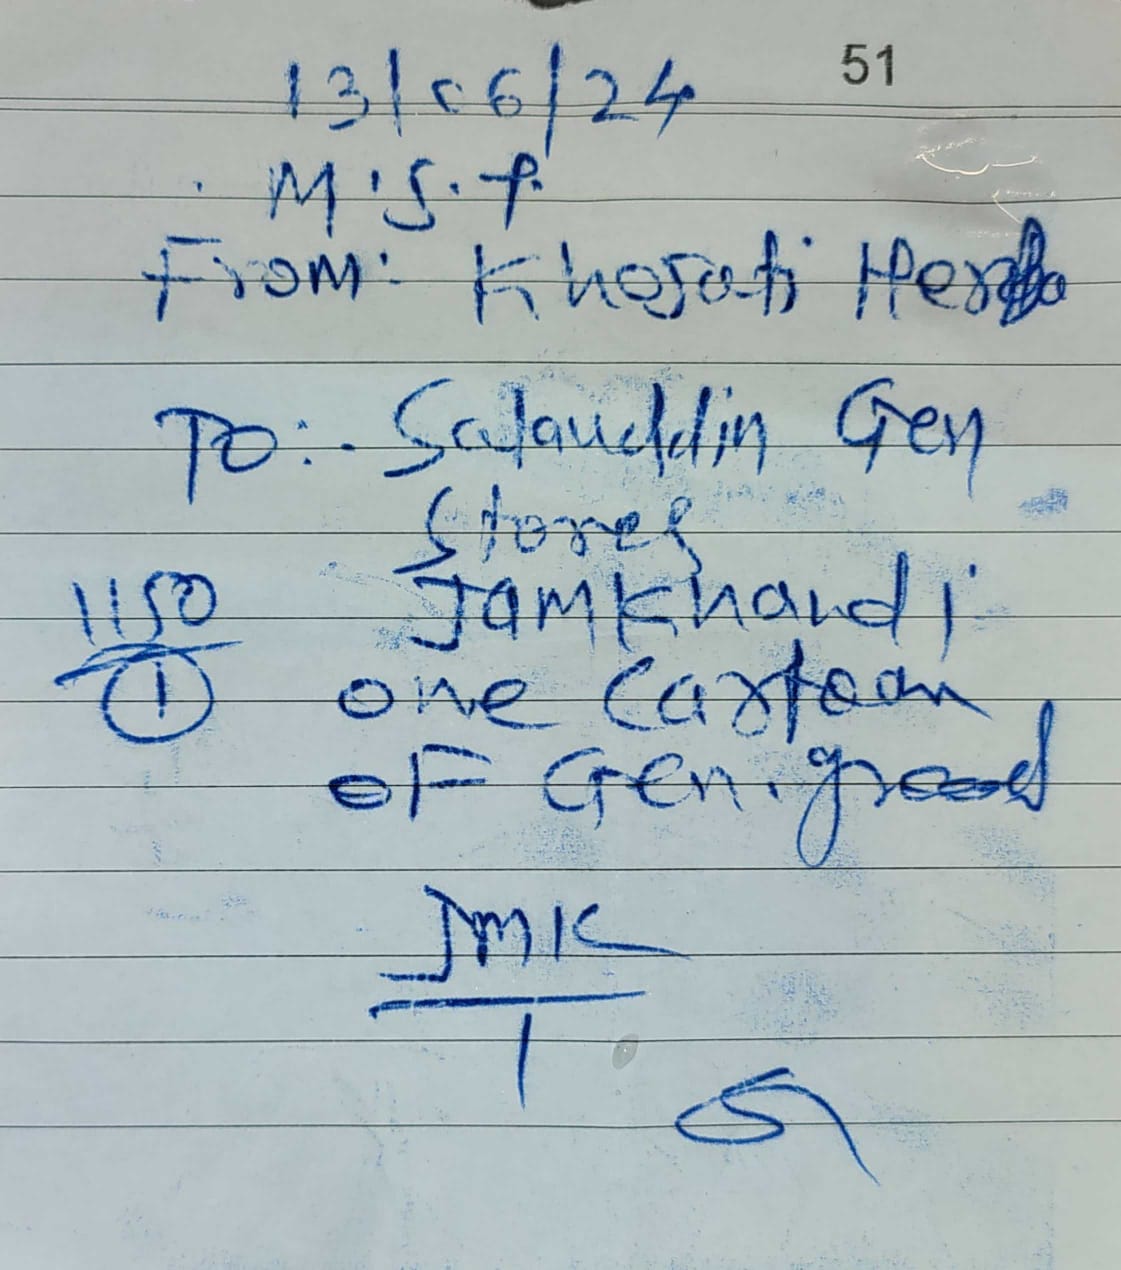 51
13/06/24
M.S.P.
From: Khojati Herb
To:- Salauddin Gen
Stores
1150 Jamkhandi
1 one Cartoon
of Gen. good
JMK
1